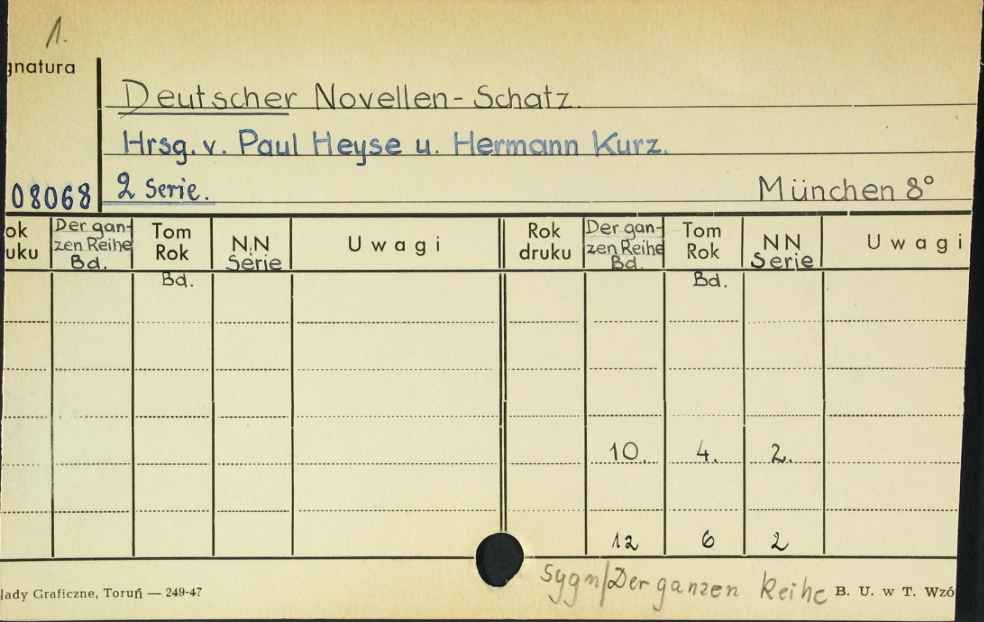 1.
gnatura
Deutscher Novellen-Schatz.
Hrsg. v. Paul Heyse u. Hermann Kurz.
08068 2 Serie. München 8°
ok uku Der gan- zen Reihe Bd. Tom Rok NN Serie Uwagi Rok druku Der gan- zen Reihe Bd. Tom Rok NN Serie Uwagi
Bd. Bd.
10. 4. 2.
12 6 2
sygn/Der ganzen Reihe
łady Graficzne, Toruń — 249-47 B. U. w T. Wzó